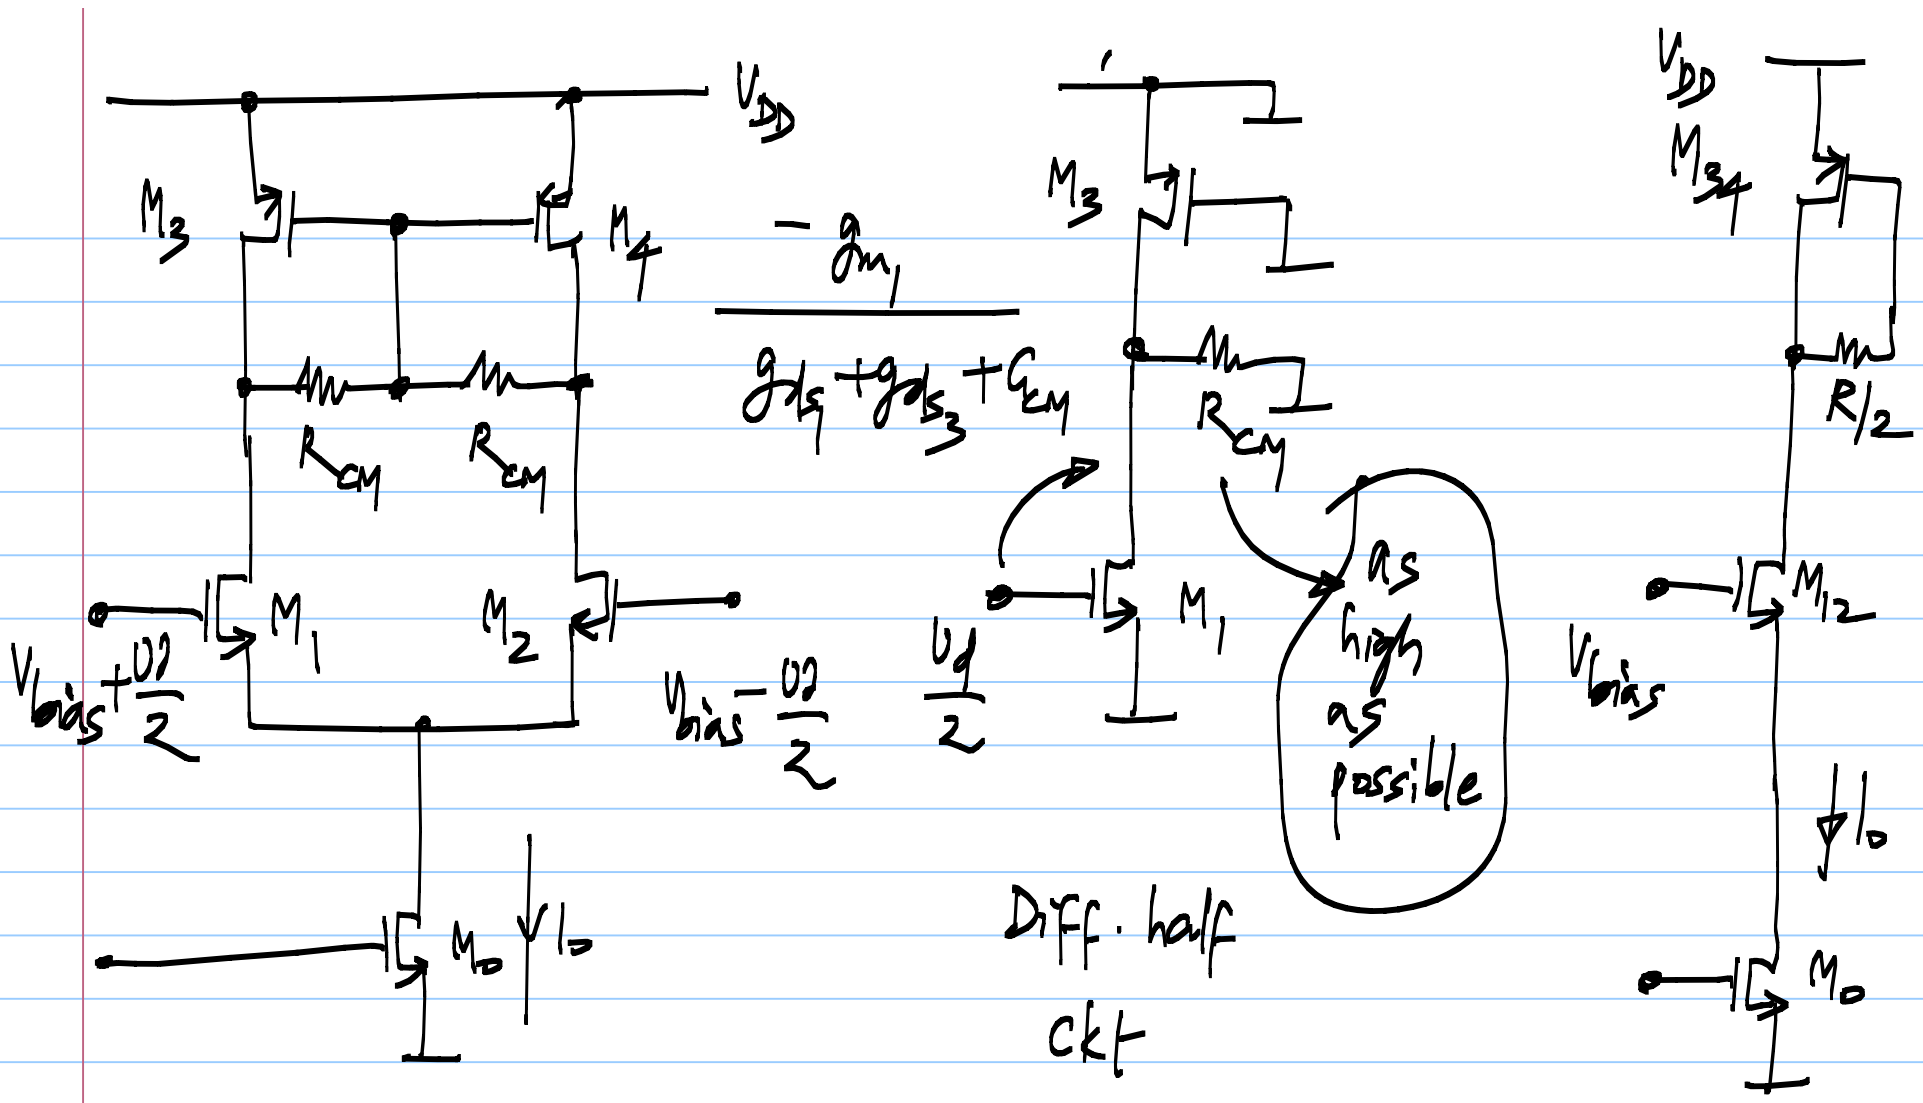 V_DD
M_3
M_4
R_CM
R_CM
M_1
M_2
V_bias + vd/2
V_bias - vd/2
M_0
I_0
- g_m1
g_ds1 + g_ds3 + G_CM
M_3
R_CM
M_1
v_d/2
as
high
as
possible
Diff. half
ckt
V_DD
M_34
R/2
M_12
V_bias
I_0
M_0